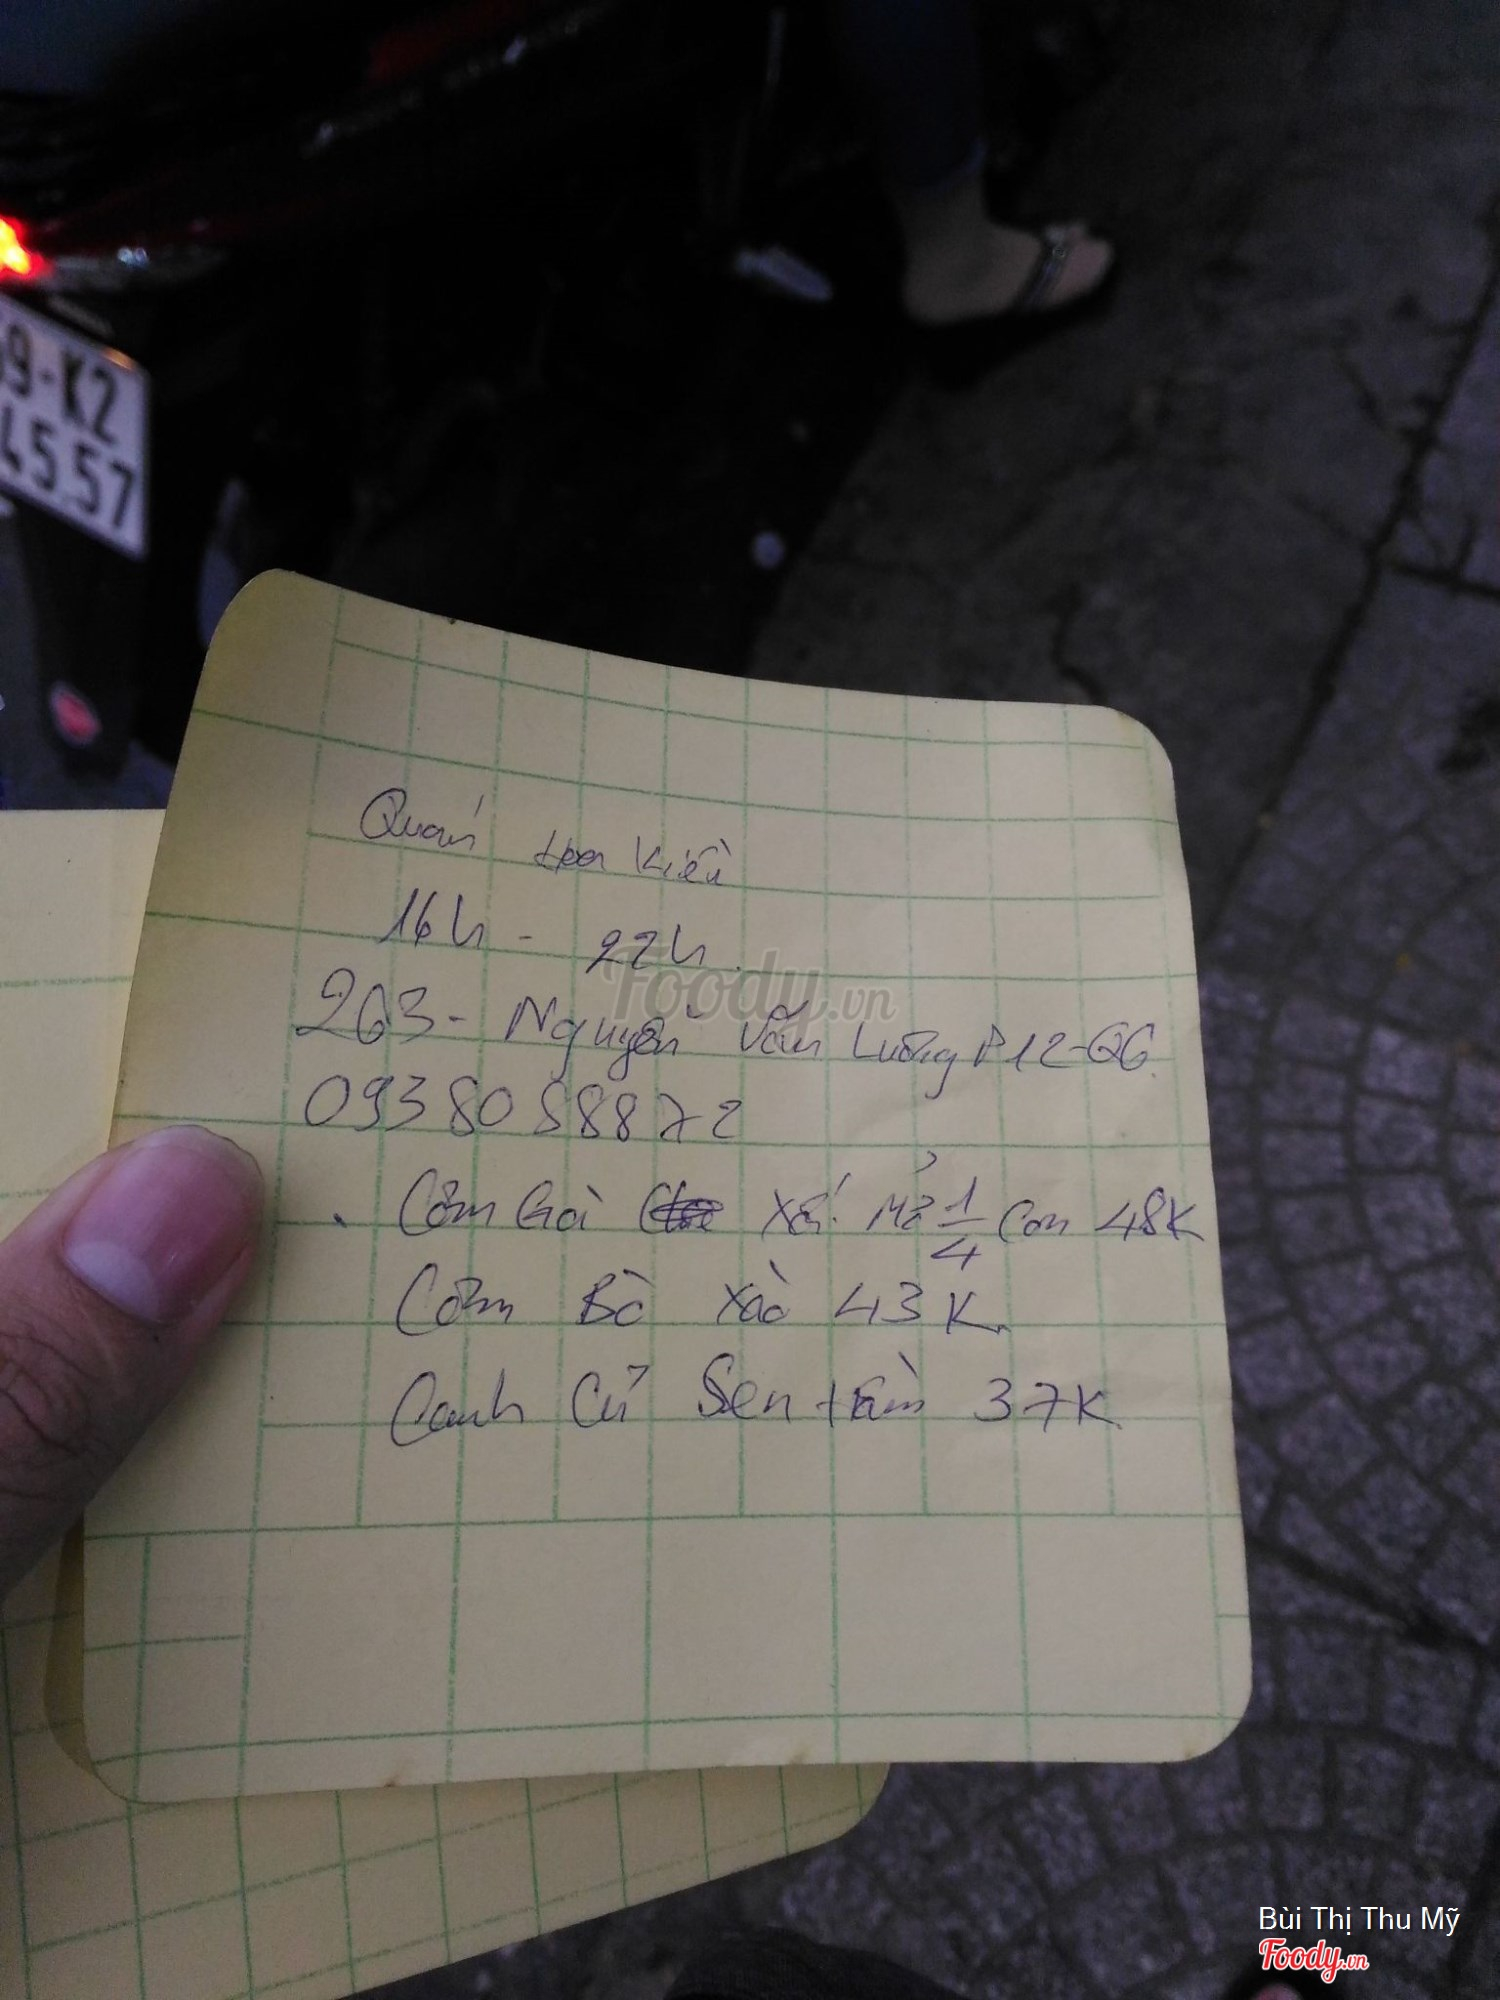 59-K2
455.57
Quán Hoa Kiều
16h - 22h.
Foody.vn
263 - Nguyễn Văn Luông P12-Q6.
0938088872
. Cơm Gà Xối Mỡ 1/4 Con 48K
Cơm Bò Xào 43K.
Canh Củ Sen Hầm 37K.
Bùi Thị Thu Mỹ
Foody.vn